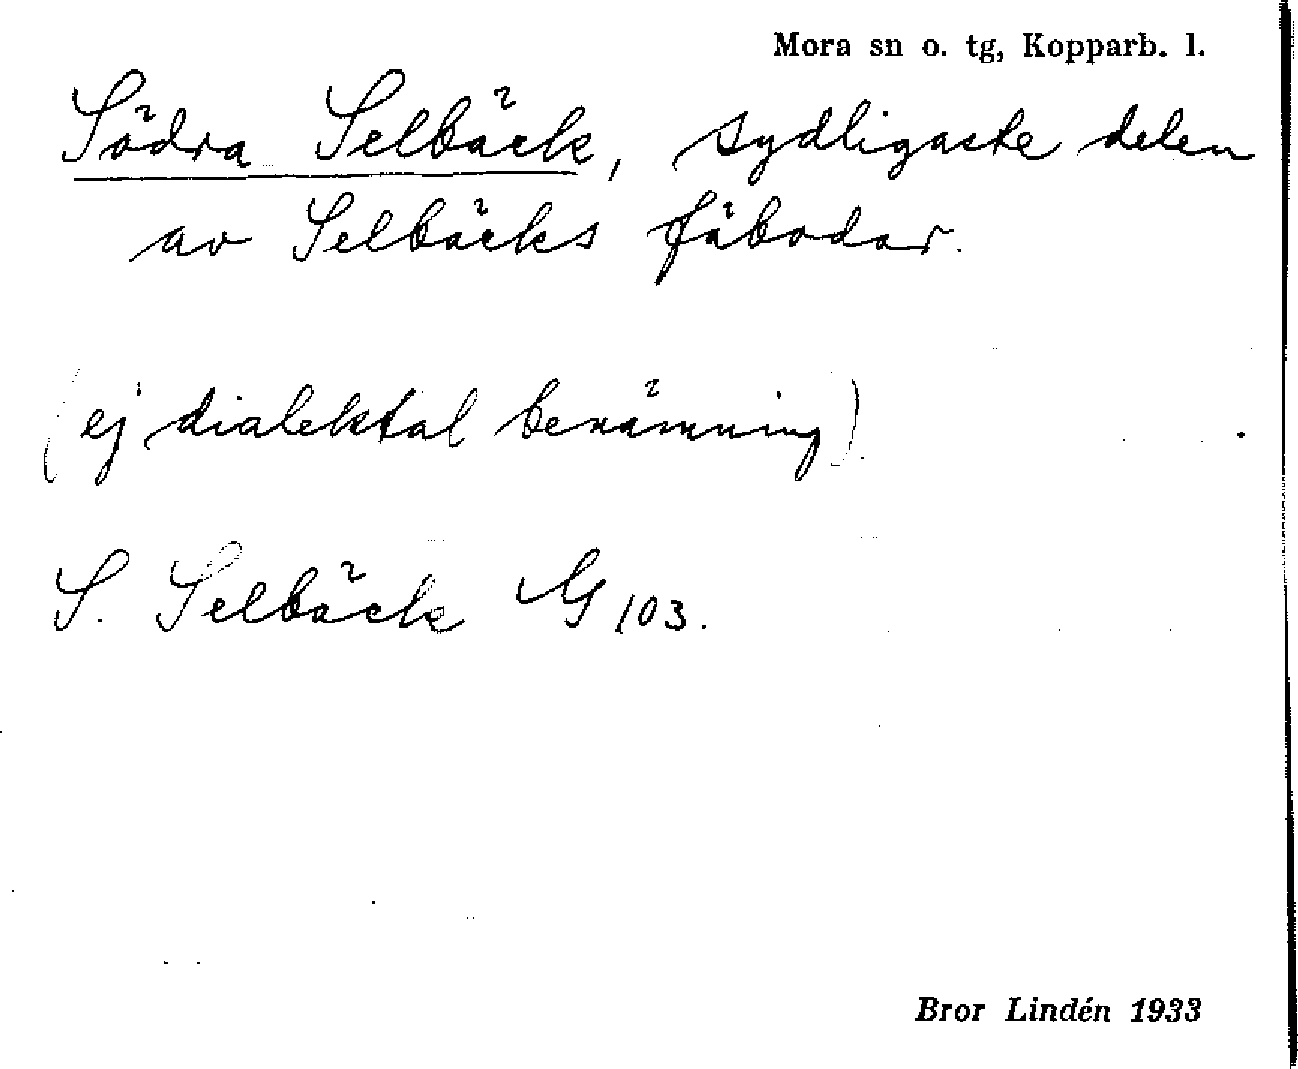 Mora sn o. tg, Kopparb. l.
Södra Selbäck, sydligaste delen
av Selbäcks fäbodar.
(ej dialektal benämning).
S. Selbäck G 103.
Bror Lindén 1933